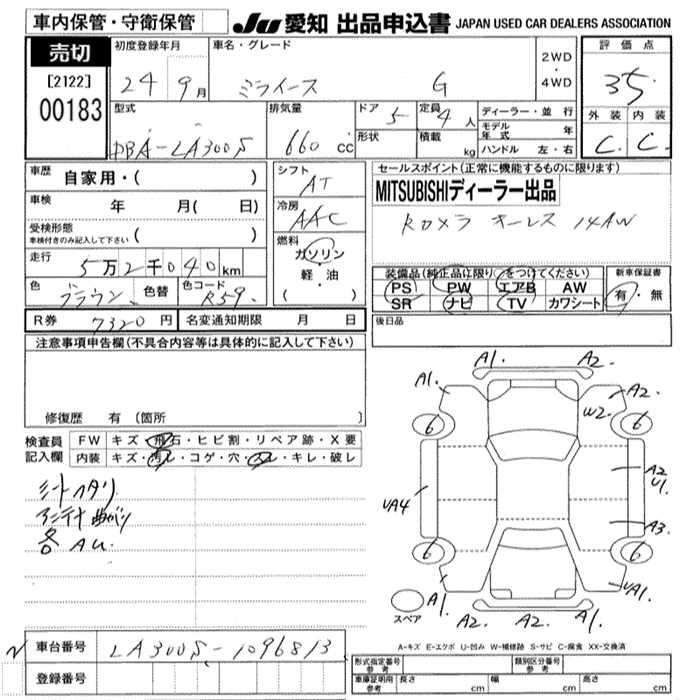 車内保管・守衛保管
JU 愛知 出品申込書 JAPAN USED CAR DEALERS ASSOCIATION
売切
[2122]
00183
初度登録年月
24 9月
車名・グレード
ミライース G
2WD・4WD
評価点
3.5
型式
DBA-LA300S
排気量
660 cc
ドア 5
形状
定員 4人
積載 kg
ディーラー・並行
モデル年式 年
ハンドル 左・右
外装 内装
C. C.
車歴 自家用・( )
車検 年 月( 日)
受検形態
車検付きのみ記入して下さい ( )
走行 5万2千040km
色 ブラウン 色替 色コード R59
シフト
AT
冷房
AAC
燃料
ガソリン・軽・油
( )
セールスポイント(正常に機能するものに限ります)
MITSUBISHIディーラー出品
Rカメラ キーレス 14AW
装備品(純正品に限り○をつけてください)
PS PW エアB AW
SR ナビ TV カワシート
新車保証書
有・無
R券 7320円 名変通知期限 月 日
後日品
注意事項申告欄(不具合内容等は具体的に記入して下さい)
修復歴 有(箇所 )
検査員記入欄
FW キズ・飛石・ヒビ割・リペア跡・X要
内装 キズ・汚レ・コゲ・穴・スレ・キレ・破レ
シートヘタリ
アンテナ曲がり
各AU.
A1. A2.
A1. A2.
W2.
6 6
UA4
A2
U1.
A3.
6 6
A1. UA1.
A2. A2. A1.
スペア
車台番号 LA300S-1096813
登録番号
A-キズ E-エクボ U-凹み W-補修跡 S-サビ C-腐食 XX-交換済
形式指定番号 参考
類別区分番号 参考
車庫証明用 参考 長さ cm 幅 cm 高さ cm